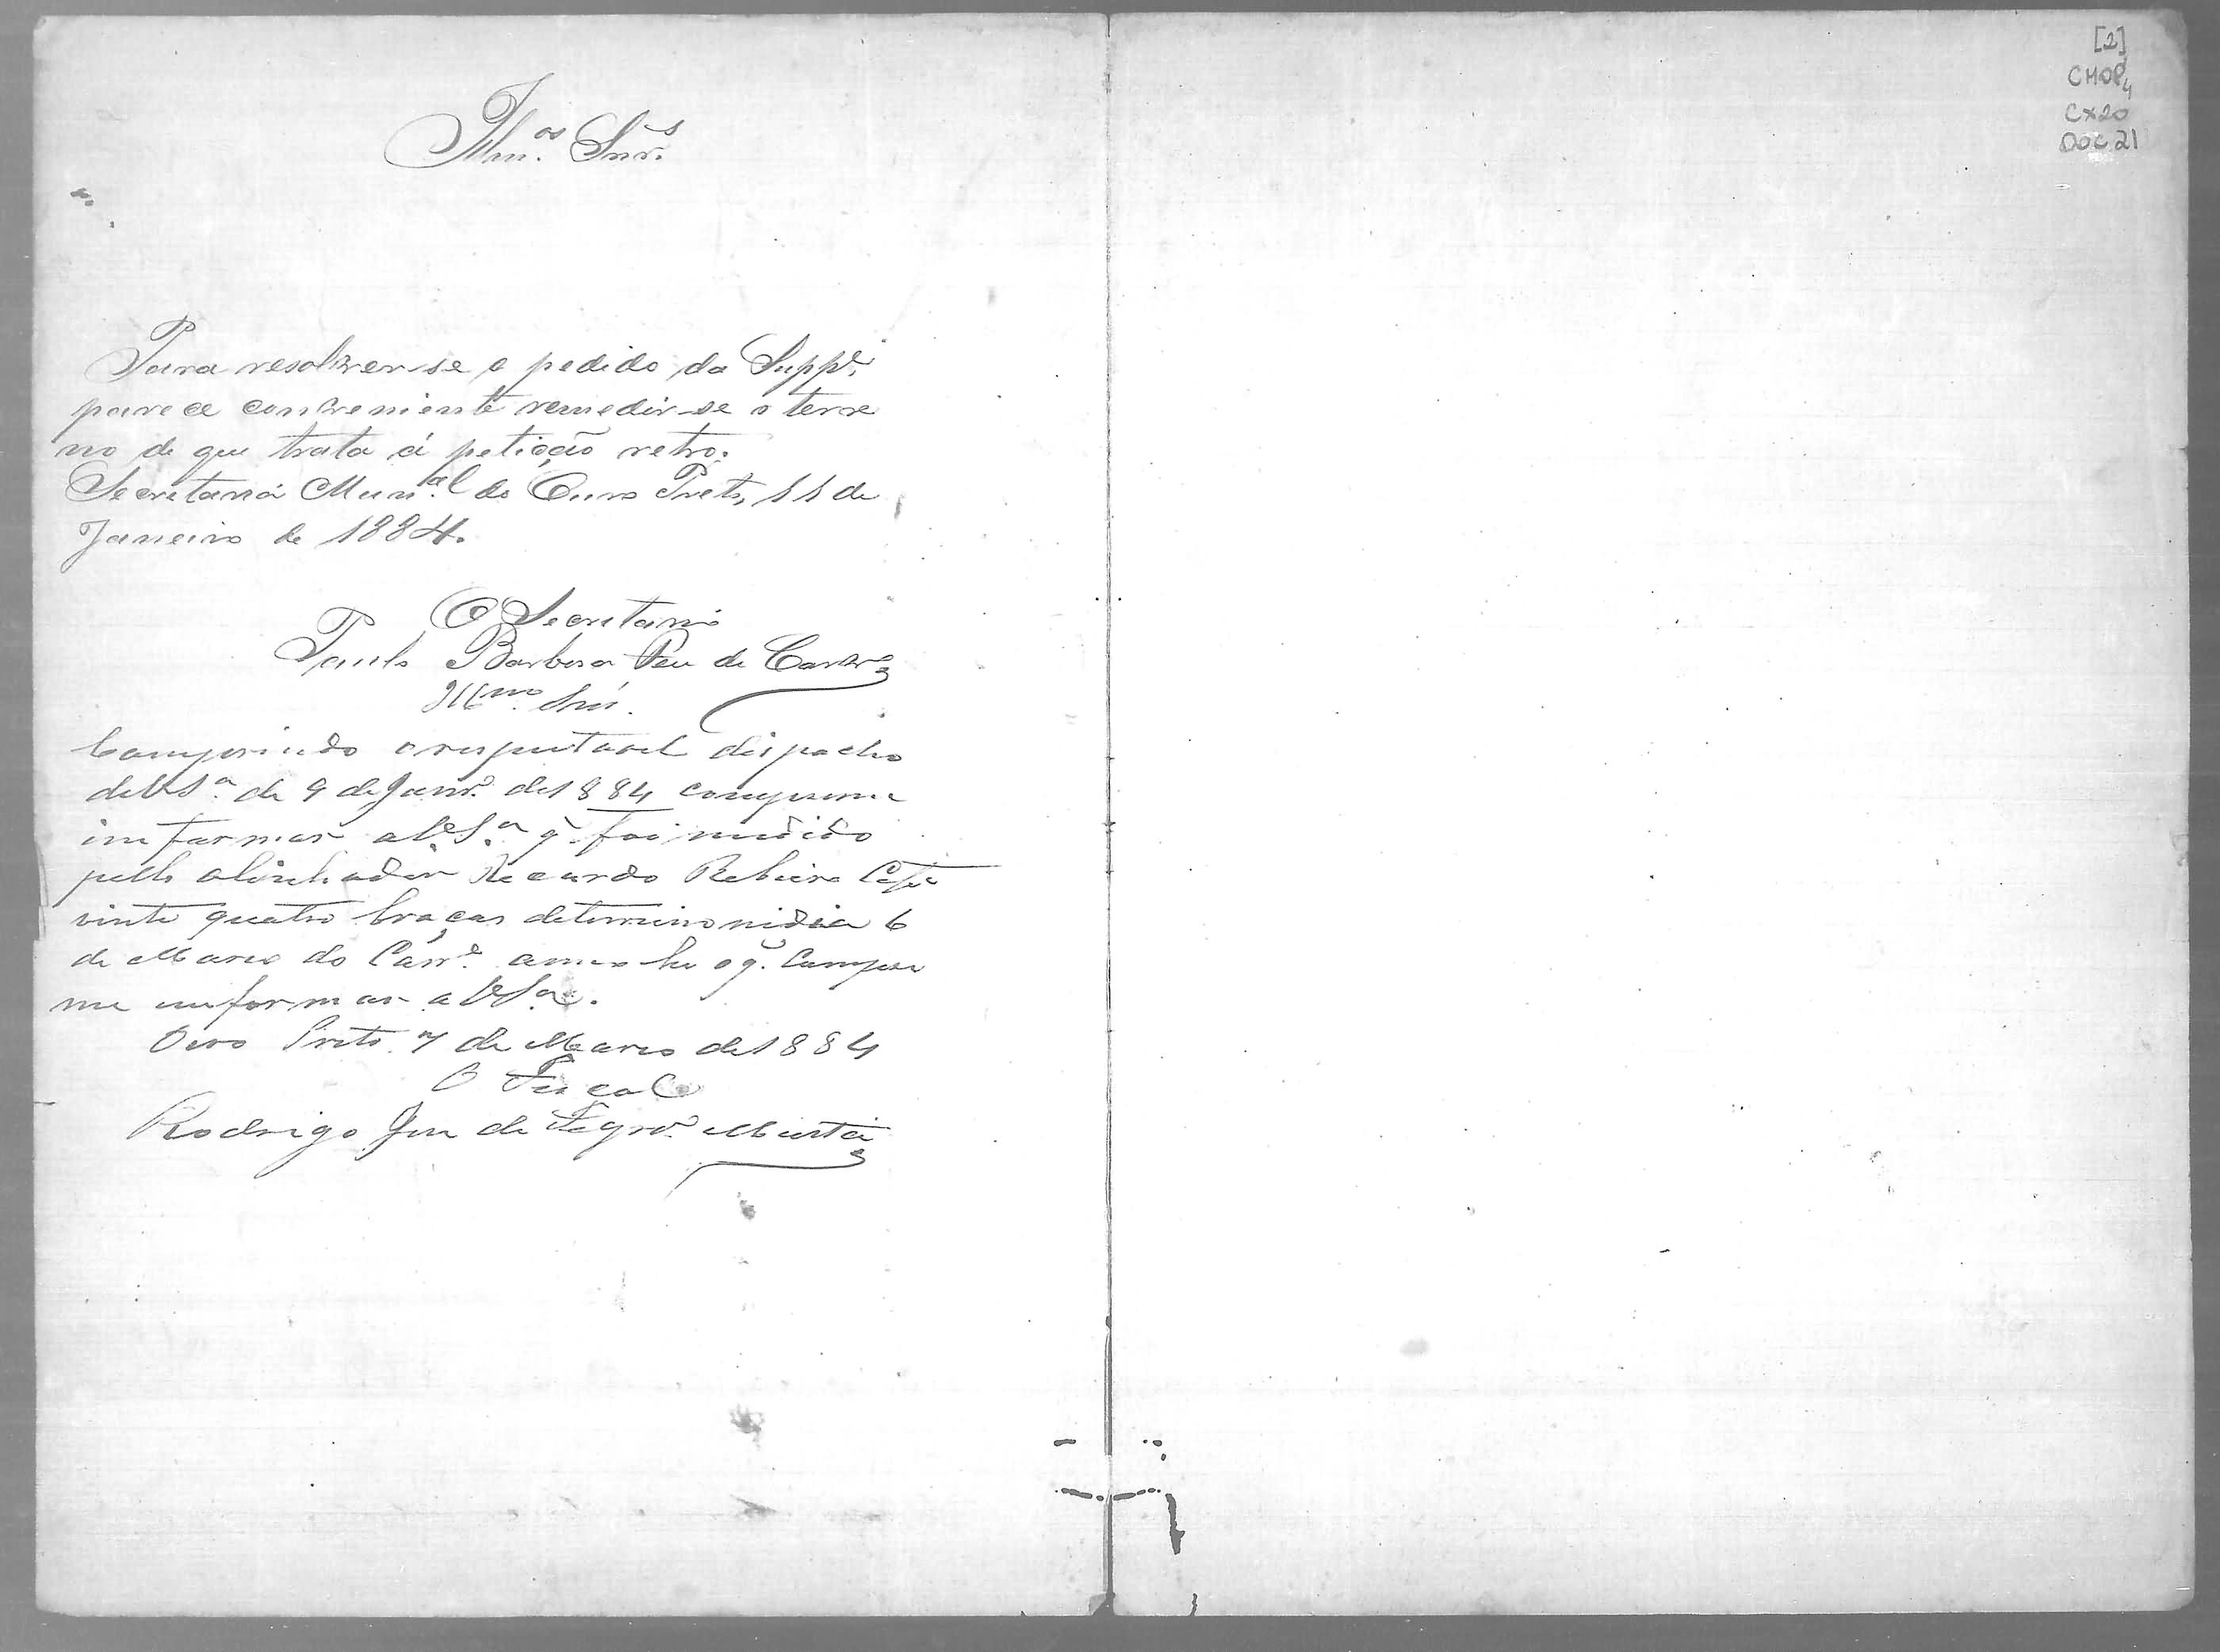 Illm.os Snr.s
Para resolver-se o pedido da Supp.e,
parece conveniente remedir-se o terre
no de que trata á petição retro.
Secretaria Mun.al do Ouro Preto, 11 de
Janeiro de 1884.
O Secretario
Paulo Barbosa de
Illmo. Snr.
Comprindo o respeitavel dispacho
de V.S.a de 9 de Janr.o de 1884 comprime
imformar a V.S.a q foi midido
pello alinhador Recardo Rebeiro
vinte quatro braças de terreino nidia 6
de Março do Corr.e anno he o q. Compri
me imformar a V.S.a.
Oiro Preto 7 de Março de 1884
O Fiscal
Rodrigo José de Figrd.o Murta
[2]
CMOP
CX20
DOC.21